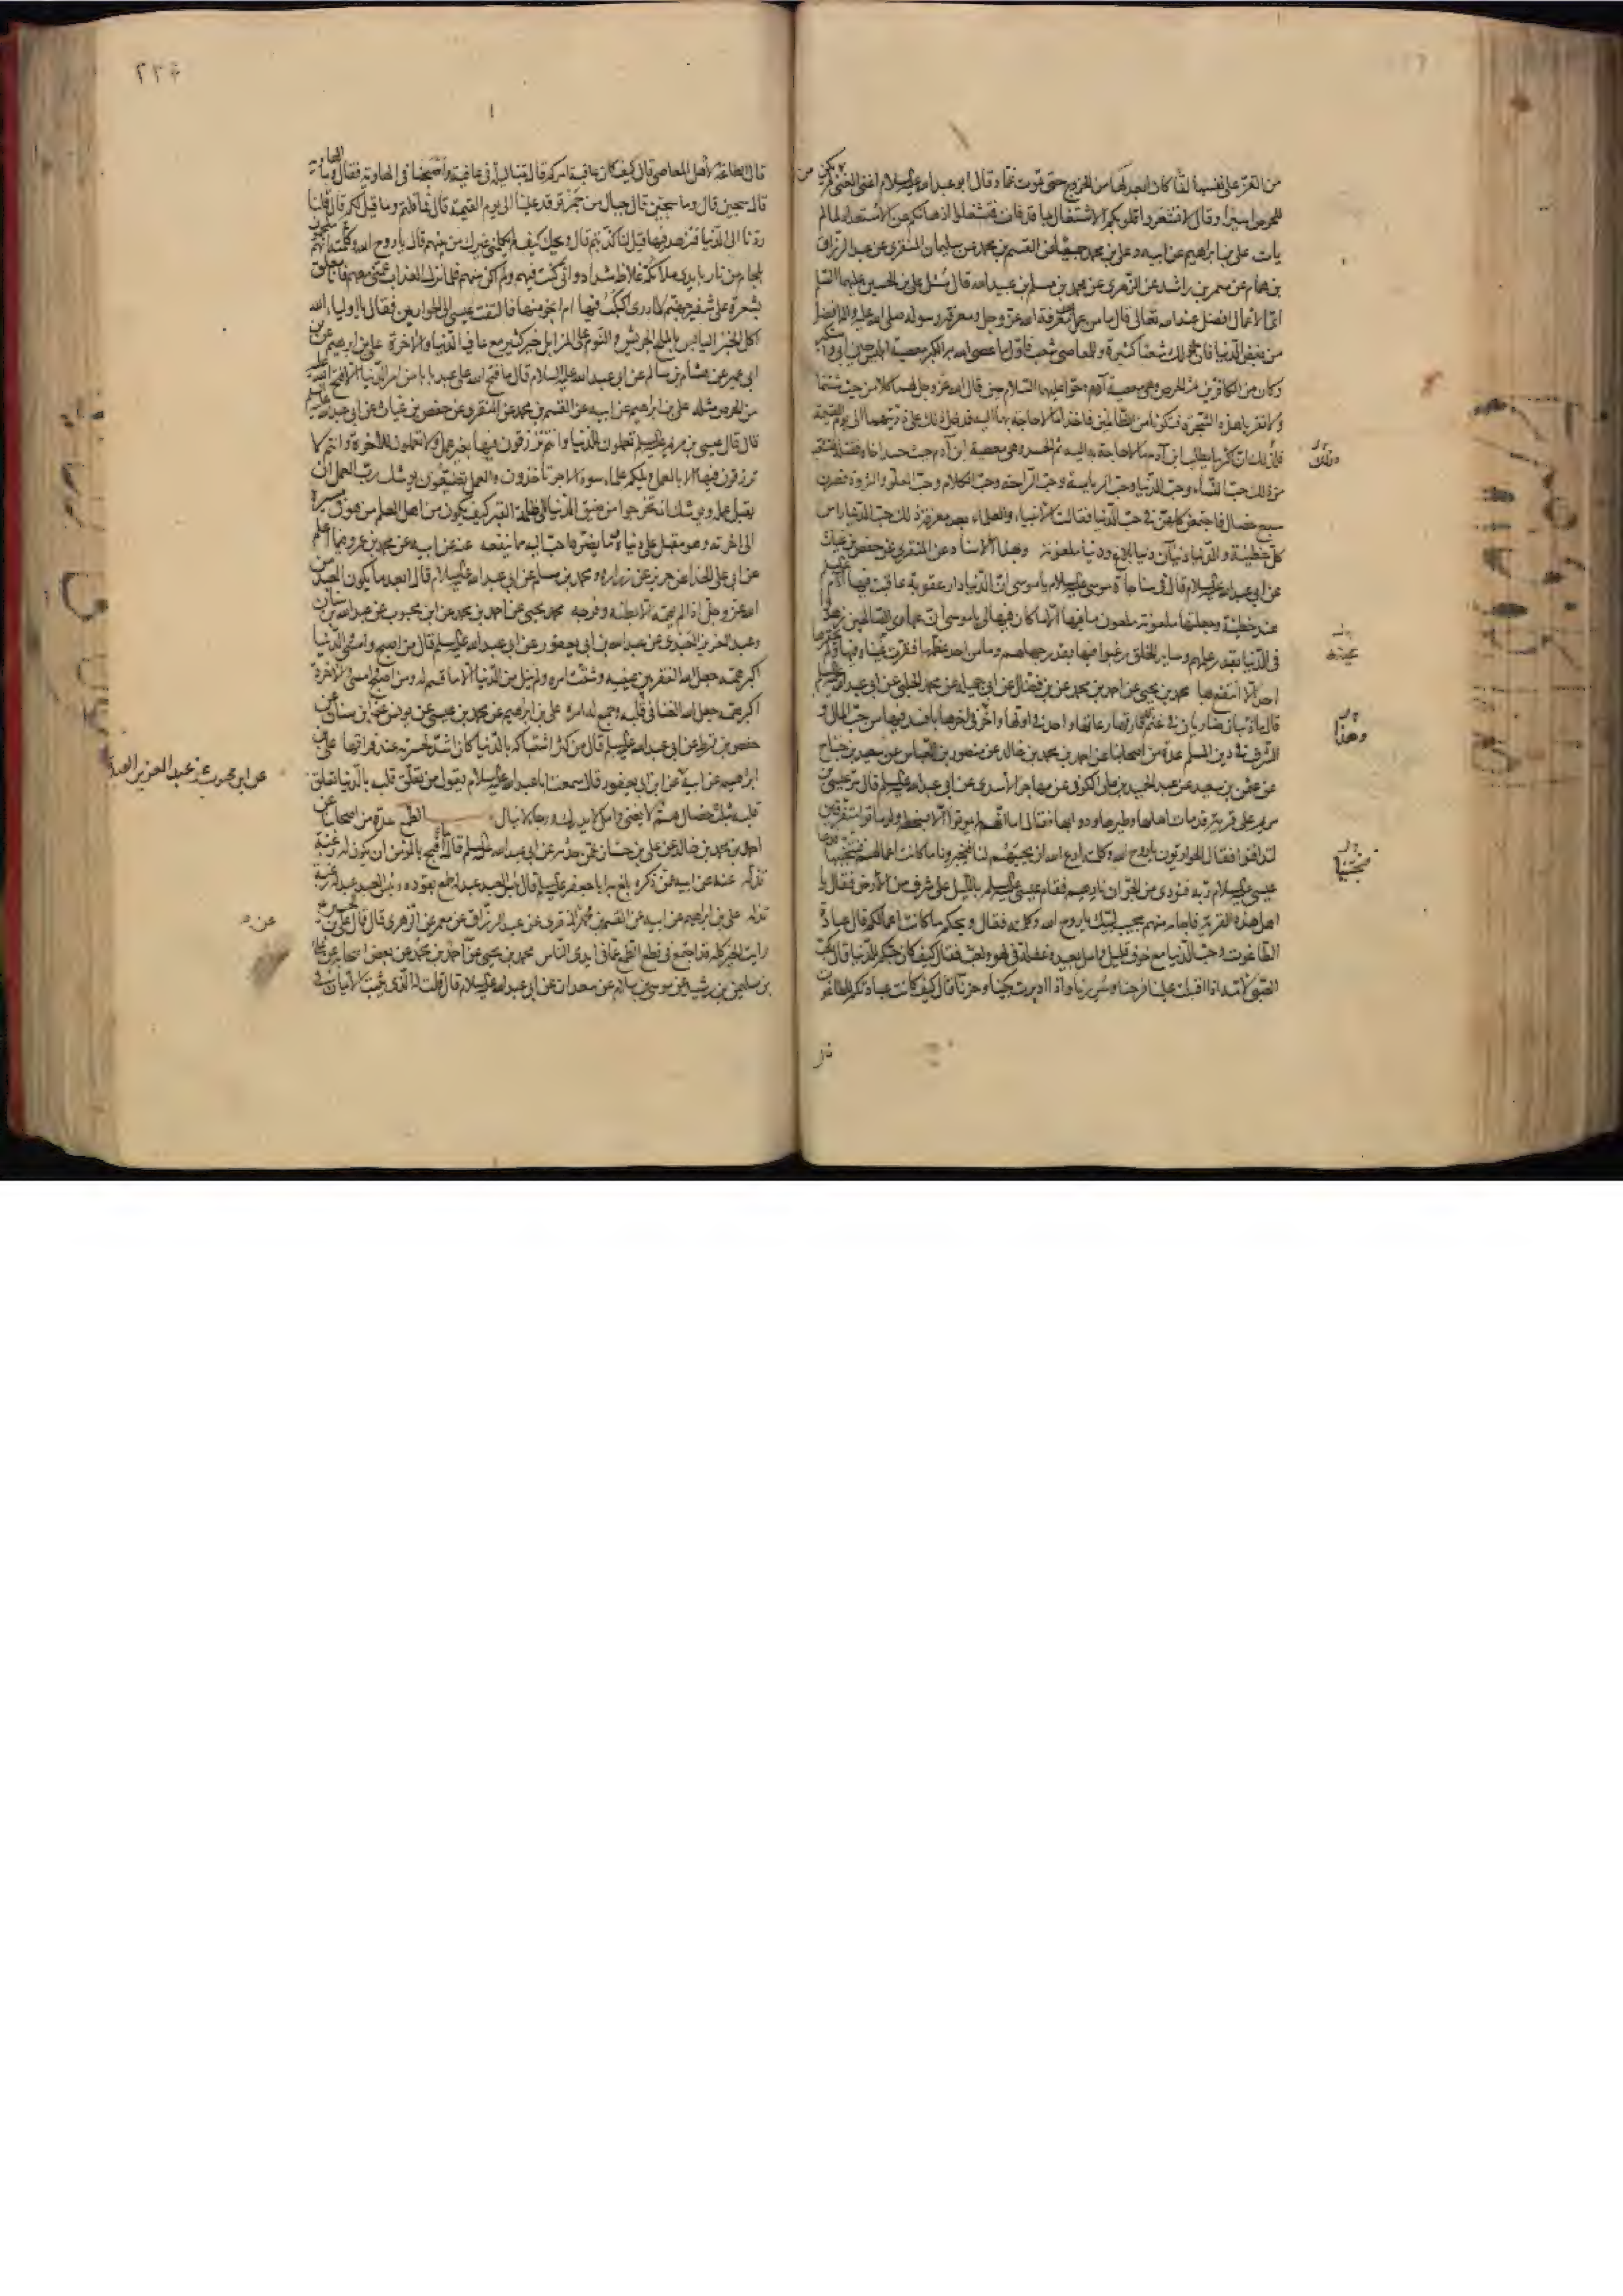 من القز على نفسها لفا كان ابعد لها من الخروج حتى تموت غما وقال ابو عبد الله عليه السلام اغنى الغنى من لم يكن
للحرص اسيرا وقال لا تشعروا قلوبكم الاشتغال بما قد فات فتشغلوا اذهانكم عن الاستعداد لما لم
يات علي بن ابراهيم عن ابيه وعلي بن محمد جميعا عن القسم بن محمد عن سليمان المنقري عن عبد الرزاق
بن همام عن معمر بن راشد عن الزهري عن محمد بن مسلم بن عبيد الله قال سئل علي بن الحسين عليهما السلام
اي الاعمال افضل عند الله تعالى قال ما من عمل بعد معرفة الله عز وجل ومعرفة رسوله صلى الله عليه واله افضل
من بغض الدنيا فان لذلك شعبا كثيرة وللمعاصي شعب فاول ما عصي الله به الكبر معصية ابليس حين ابى و
وكان من الكافرين ثم الحرص وهي معصية آدم وحوا عليهما السلام حين قال الله عز وجل لهما كلا من حيث شئتما
ولا تقربا هذه الشجرة فتكونا من الظالمين فاخذا ما لا حاجة بهما اليه فدخل ذلك على ذريتهما الى يوم القيمة
فلذلك ان اكثر ما يطلب ابن آدم ما لا حاجة به اليه ثم الحسد وهي معصية ابن آدم حيث حسد اخاه فقتله فتشعب
من ذلك حب النساء وحب الدنيا وحب الرياسة وحب الراحة وحب الكلام وحب العلو والثروة فصرن
سبع خصال فاجتمعن كلهن في حب الدنيا فقالت الانبياء والعلماء بعد معرفة ذلك حب الدنيا راس
كل خطيئة والدنيا دنياآن دنيا بلاغ ودنيا ملعونة وبهذا الاسناد عن المنقري عن حفص بن غياث
عن ابي عبد الله عليه السلام قال في مناجاة موسى عليه السلام يا موسى ان الدنيا دار عقوبة عاقبت فيها آدم
عند خطيئته وجعلتها ملعونة ملعون ما فيها الا ما كان فيها لي يا موسى ان عبادي الصالحين زهدوا
في الدنيا بقدر علمهم وساير الخلق رغبوا فيها بقدر جهلهم وما من احد عظمها فقرت عيناه فيها ولم يحقرها
احد الا انتفع بها محمد بن يحيى عن احمد بن محمد عن بن فضال عن ابي جميلة عن محمد الحلبي عن ابي عبد الله عليه السلام
قال ما ذئبان ضاريان في غنم قد فارقها رعاتها واحد في اولها واخر في اخرها بافسد فيها من حب المال و
الشرف في دين المسلم عدة من اصحابنا عن احمد بن محمد بن خالد عن منصور بن العباس عن سعيد بن جناح
عن عثمن بن سعيد عن عبد الحميد بن علي الكوفي عن مهاجر الاسدي عن ابي عبد الله عليه السلام قال مر عيسى بن
مريم على قرية قد مات اهلها وطيرها ودوابها فقال اما انهم لم يموتوا الا بسخطة ولو ماتوا متفرقين
لتدافنوا فقال الحواريون يا روح الله وكلمته ادع الله ان يحييهم لنا فيخبرونا ما كانت اعمالهم فنجتنبها فدعا
عيسى عليه السلام ربه فنودي من الجو ان نادهم فقام عيسى عليه السلم بالليل على شرف من الارض فقال يا
اهل هذه القرية فاجابه منهم مجيب لبيك يا روح الله وكلمته فقال ويحكم ما كانت اعمالكم قال عبادة
الطاغوت وحب الدنيا مع خوف قليل وامل بعيد وغفلة في لهو ولعب فقال كيف كان حبكم للدنيا قال كحب
الصبي لامه اذا اقبلت علينا فرحنا وسررنا واذا ادبرت بكينا وحزنا قال كيف كانت عبادتكم للطاغوت
وذلك
عينه
وهذا
فنجتنبها
قال
٢٢٤
قال الطاعة لاهل المعاصي قال كيف كان عاقبة امركم قال بتنا ليلة في عافية واصبحنا في الهاوية فقال وما الهاوية
قال سجين قال وما سجين قال جبال من جمر توقد علينا الى يوم القيمة قال فما قلتم وما قيل لكم قال قلنا
ردنا الى الدنيا فنزهد فيها قيل لنا كذبتم قال ويحك كيف لم يكلمني غيرك من بينهم قال يا روح الله وكلمته انهم ملجمون
بلجام من نار بايدي ملائكة غلاظ شداد واني كنت فيهم ولم اكن منهم فلما نزل العذاب عمني معهم فانا معلق
بشعرة على شفير جهنم لا ادري اكبكب فيها ام انجو منها فالتفت عيسى الى الحواريين فقال يا اولياء الله
اكل الخبز اليابس بالملح الجريش والنوم على المزابل خير كثير مع عافية الدنيا والاخرة علي بن ابرهيم عن بن
ابي عمير عن هشام بن سالم عن ابي عبد الله عليه السلام قال ما فتح الله على عبد بابا من امر الدنيا الا فتح الله عليه
من الحرص مثله علي بن ابراهيم عن ابيه عن القسم بن محمد عن المنقري عن حفص بن غياث عن ابي عبد الله عليه السلم
قال قال عيسى بن مريم عليه السلم تعملون للدنيا وانتم ترزقون فيها بغير عمل ولا تعملون للاخرة وانتم لا
ترزقون فيها الا بالعمل ويلكم علماء سوء الاجر تاخذون والعمل تضيعون يوشك رب العمل ان
يقبل عمله ويوشك ان تخرجوا من ضيق الدنيا الى ظلمة القبر كيف يكون من اهل العلم من هو في مسيره
الى اخرته وهو مقبل على دنياه وما يضره احب اليه مما ينفعه عنه عن ابيه عن محمد بن عمرو فيما اعلم
عن ابي علي الحذاء عن حريز عن زراره ومحمد بن مسلم عن ابي عبد الله عليه السلام قال ابعد ما يكون العبد من
الله عز وجل اذا لم يهمه الا بطنه وفرجه محمد بن يحيى عن احمد بن محمد عن ابن محبوب عن عبد الله بن سنان
وعبد العزيز العبدي عن عبد الله بن ابي يعفور عن ابي عبد الله عليه السلم قال من اصبح وامسى والدنيا
اكبر همه جعل الله الفقر بين عينيه وشتت امره ولم ينل من الدنيا الا ما قسم له ومن اصبح وامسى والاخرة
اكبر همه جعل الله الغنا في قلبه وجمع له امره علي بن ابراهيم عن محمد بن عيسى عن يونس عن ابن سنان عن
حفص بن قرط عن ابي عبد الله عليه السلم قال من كثر اشتباكه بالدنيا كان اشد لحسرته عند فراقها علي بن
ابراهيم عن ابيه عن ابن ابي يعفور قال سمعت ابا عبد الله عليه السلام يقول من تعلق قلبه بالدنيا تعلق
قلبه بثلث خصال هم لا يفنى وامل لا يدرك ورجاء لا ينال الطمع عدة من اصحابنا عن
احمد بن محمد بن خالد عن علي بن حسان عمن حدثه عن ابي عبد الله عليه السلم قال ما اقبح بالمؤمن ان يكون له رغبة
تذله عنه عن ابيه عمن ذكره بلغ به ابا جعفر عليه السلم قال بئس العبد عبد له طمع يقوده وبئس العبد عبد له رغبة
تذله علي بن ابراهيم عن ابيه عن القسم بن محمد المنقري عن عبد الرزاق عن معمر عن الزهري قال قال علي بن الحسين
رايت الخير كله قد اجتمع في قطع الطمع عما في ايدي الناس محمد بن يحيى عن احمد بن محمد عن بعض اصحابه عن علي
بن سليمن بن رشيد عن موسى بن سلام عن سعدان عن ابي عبد الله عليه السلام قال قلت له الذي يثبت الايمان في
عن ابن محبوب عن عبد العزيز العبدي
عن